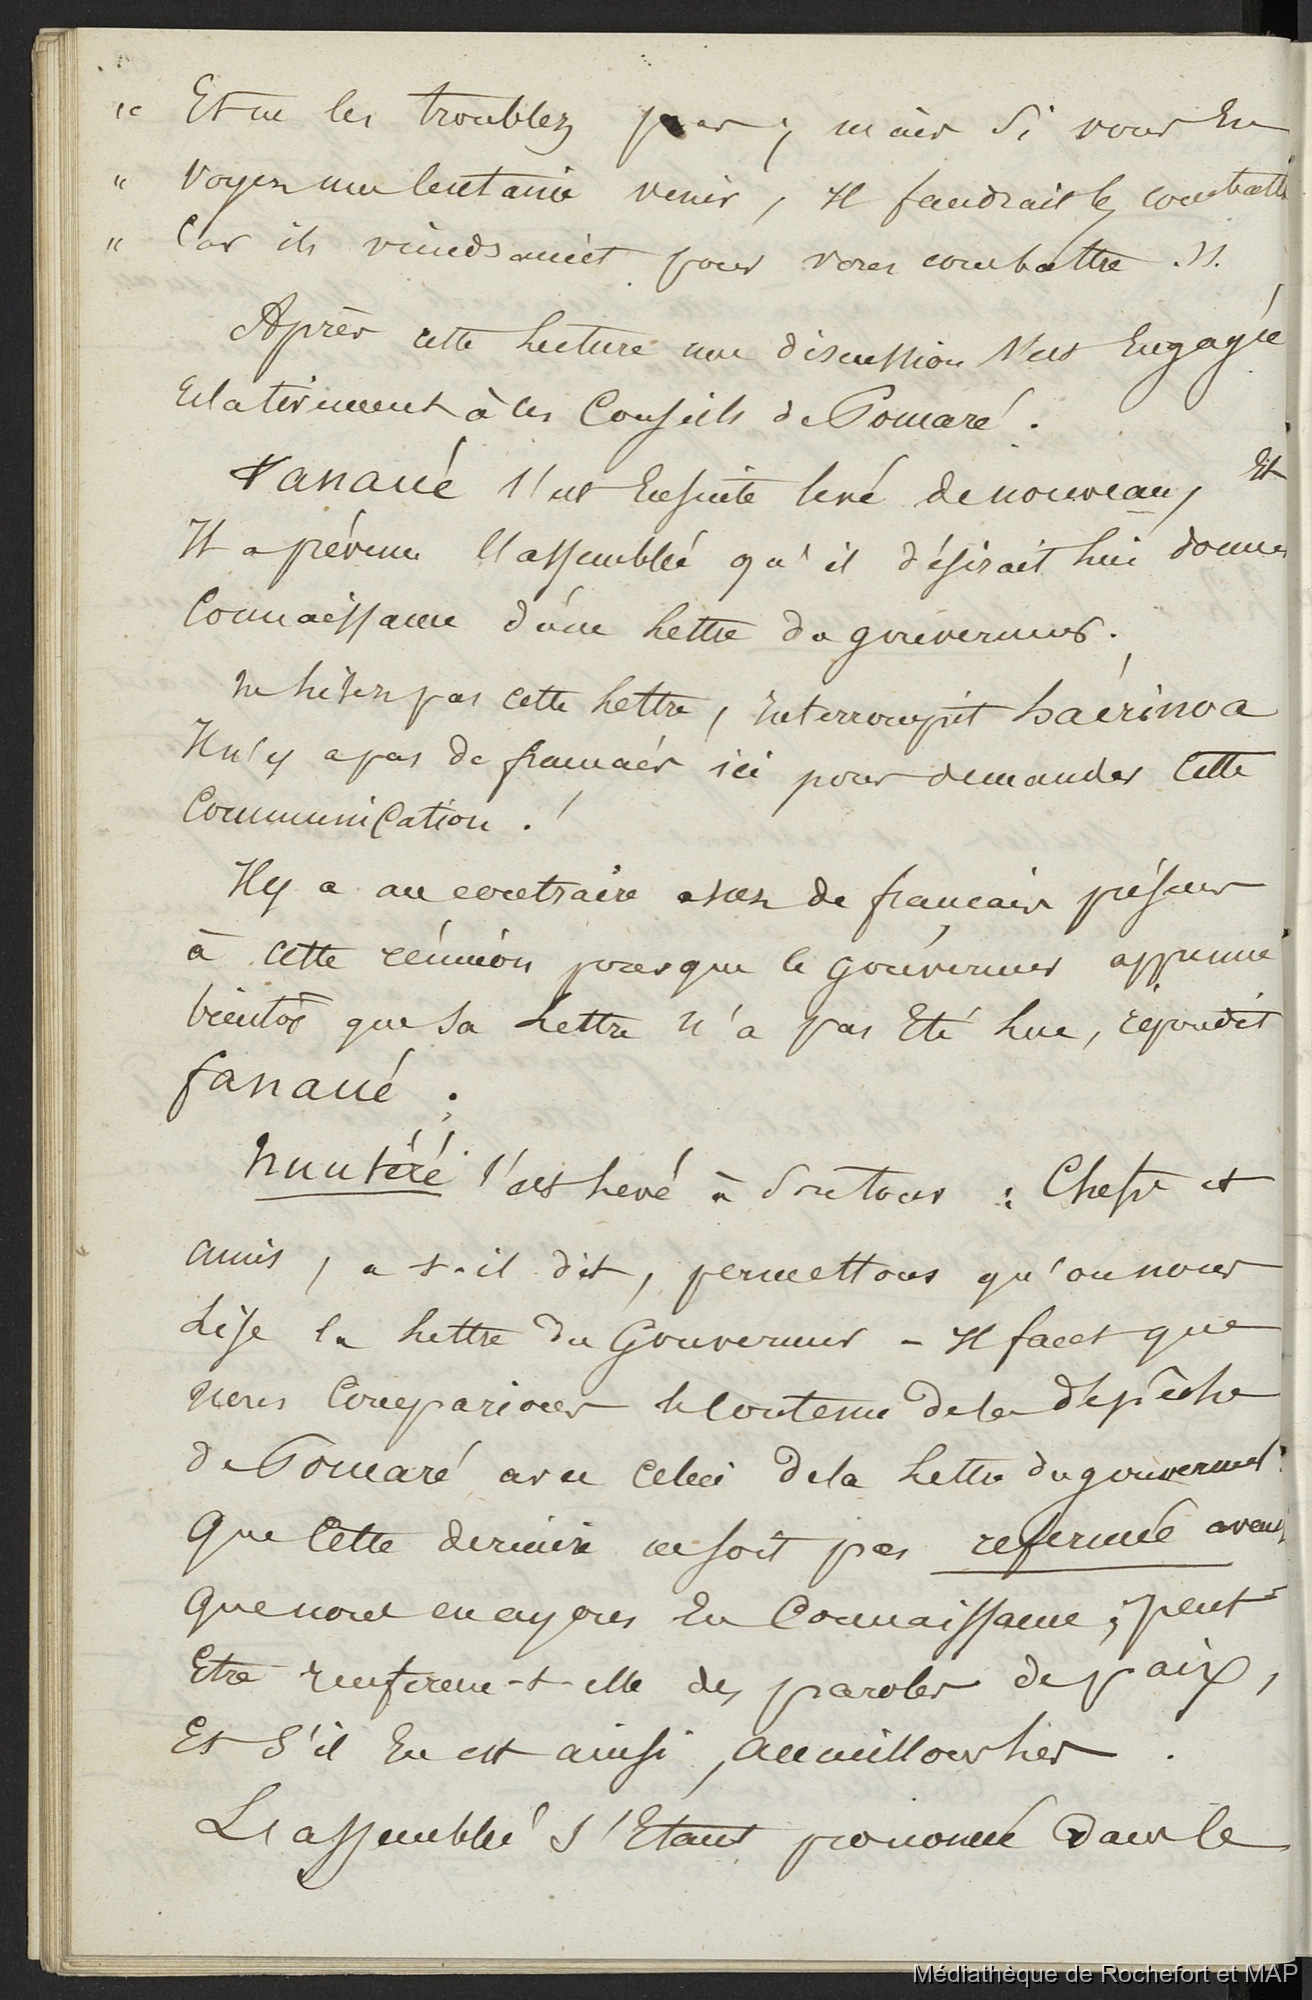 " Et ne les troublez pas ; mais si vous en
" voyez une centaine venir, il faudrait les combattre
" Car ils viendraient pour vous combattre ."
Après cette lecture une discussion s'est engagée
relativement à les Conseils de Pomaré .
Fanaué s'est ensuite levé de nouveau, et
Il a prévenu l'assemblée qu'il désirait lui donner
Connaissance d'une lettre du gouverneur.
ne lisez pas cette lettre, interrompit
Il n'y a pas de français ici pour demander cette
Communication . !
Il y a au contraire assez de français présens
à cette réunion pour que le gouverneur apprenne
bientôt que sa lettre n'a pas été lue, répondit
fanaué .
s'est levé à son tour : Chefs et
amis, a-t-il dit, permettons qu'on nous
Lise la lettre du Gouverneur - Il faut que
nous comparions le contenu de la dépêche
de Pomaré avec celui de la lettre du gouverneur.
Que cette dernière ne soit pas refermée avant
que nous en ayons eu Connaissance ; peut-
Etre renferme-t-elle des paroles de paix,
Et s'il en est ainsi, accueillons les .
L'assemblée s'étant prononcé dans le
Médiathèque de Rochefort et MAP